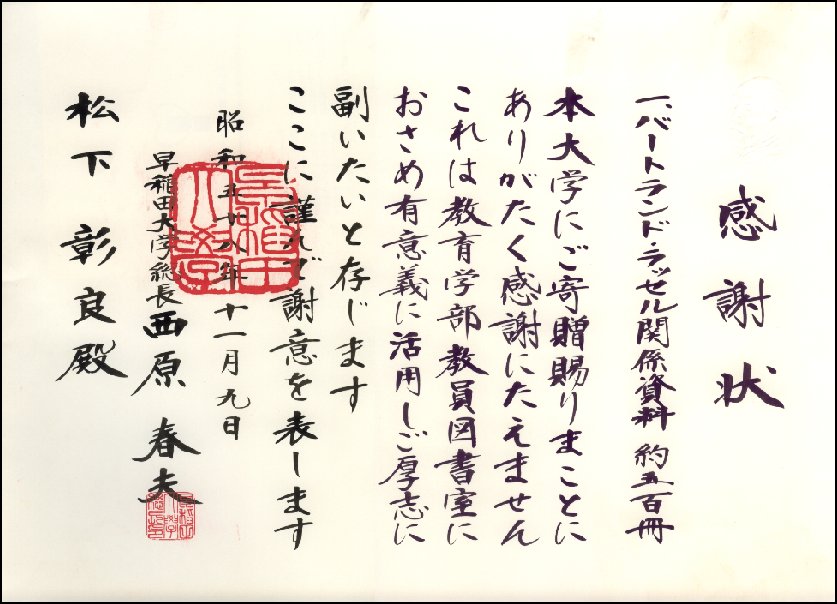 感謝状
一、バートランド・ラッセル関係資料 約五百冊
本大学にご寄贈賜りまことに
ありがたく感謝にたえません
これは教育学部教員図書室に
おさめ有意義に活用しご厚志に
副いたいと存じます
ここに謹んで謝意を表します
昭和五十八年十一月九日
早稲田大学総長 西原春夫
松下彰良殿